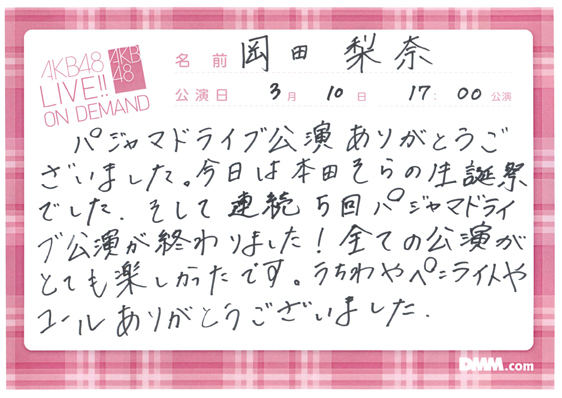 AKB48
LIVE!!
ON DEMAND
AKB
48
名前 岡田 梨奈
公演日 3月 10日 17:00公演
パジャマドライブ公演ありがとうご
ざいました。今日は本田そらの生誕祭
でした. そして連続5回パジャマドライ
ブ公演が終わりました!全ての公演が
とても楽しかったです。うちわやペンライトや
コールありがとうございました.
DMM.com